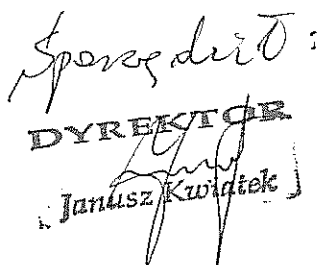 Sporządził:
DYREKTOR
Janusz Kwiatek